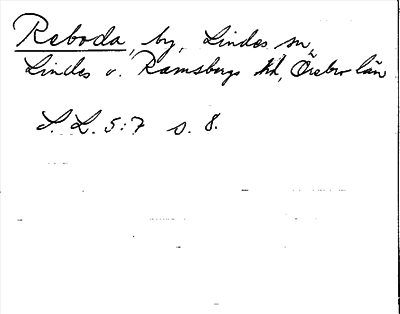 Reboda, by, Lindes sn,
Lindes o. Ramsbergs hd, Örebro län
S.L. 5:7 s. 8.